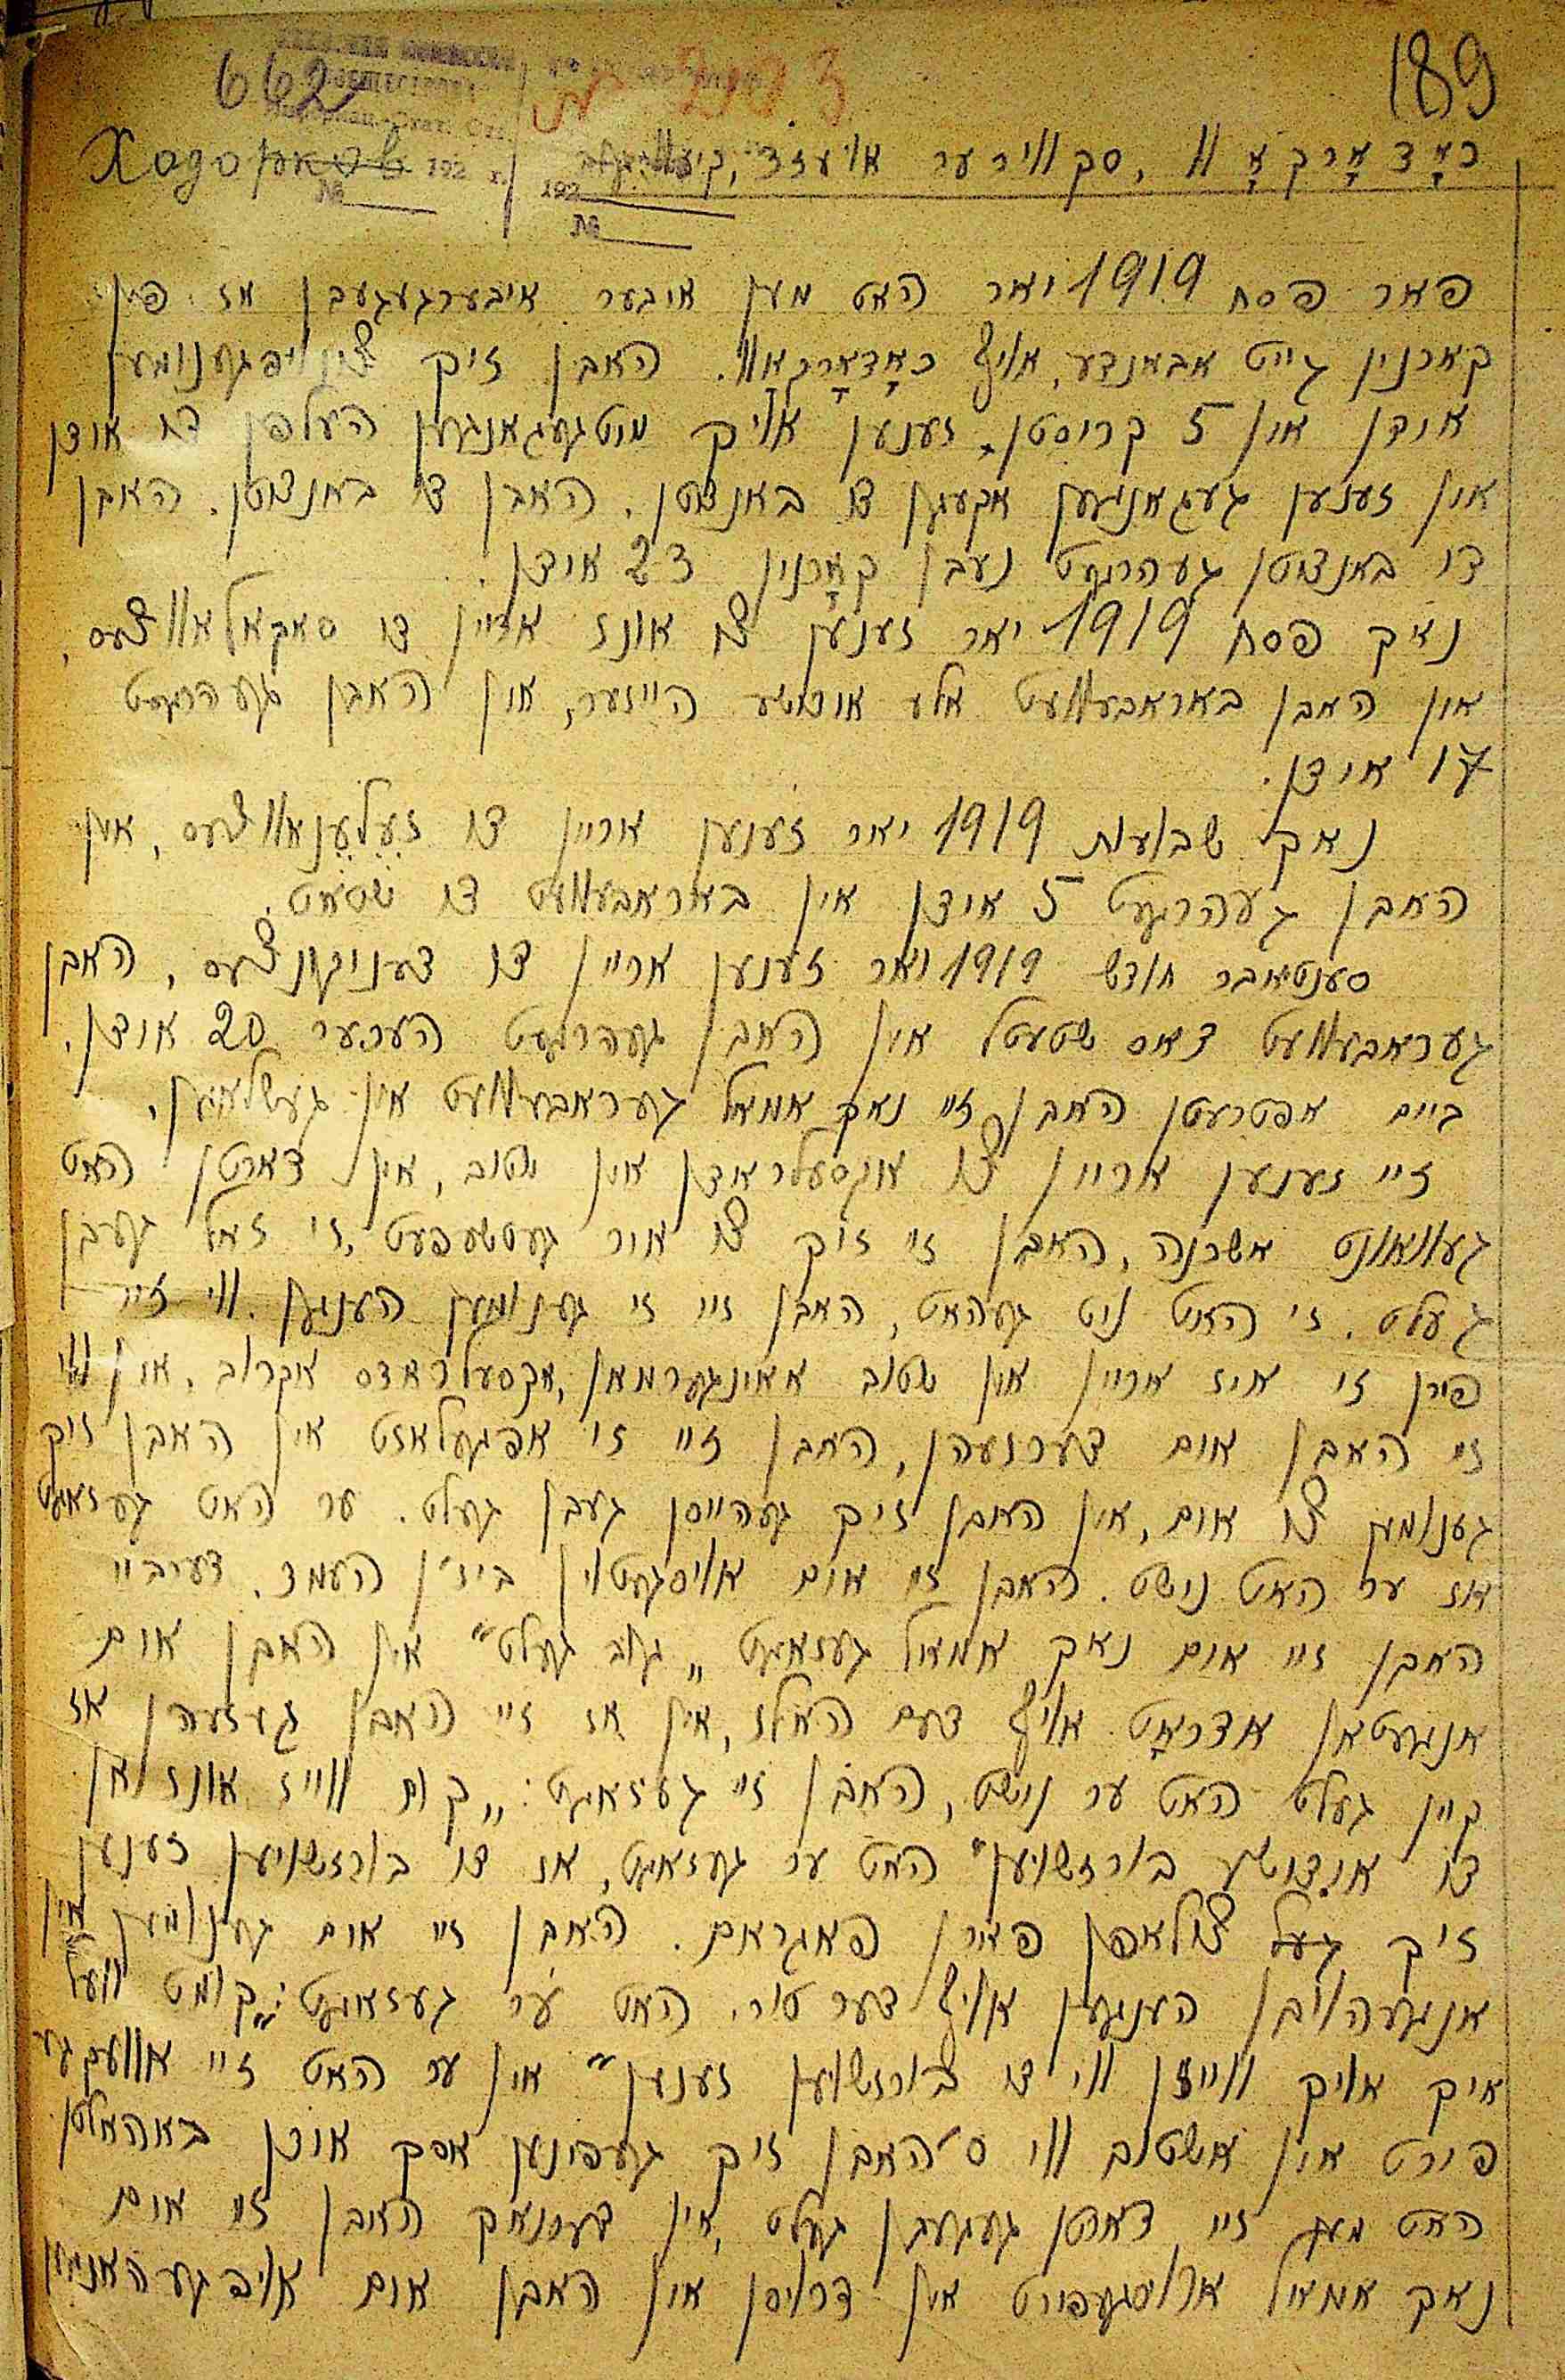 189
662
כאָדאָרקאָוו, סקווירער אויעזד, קיעוו.גוב.
Ходорков 192 г. 192
№ №
פאר פסח 1919 יאר האט מען איבער איבערגעגעבן אז פון
קארנין גייט אבאנדע, אויף כאָדאָרקאָוו. האבן זיך צונויפגענומען
אידן און 5 קריסטן זענען אויך מיטגעגאנגען העלפן די אידן
און זענען געגאנגען אקעגן די באנדיטן. האבן די באנדיטן. האבן
די באנדיטן געהרגעט נעבן קאָרנין 23 אידן.
נאך פסח 1919 יאר זענען צו אונז אריין די סאקאלאווצעס,
און האבן באראבעוועט אלע אידישע הייזער, און האבן געהרגעט
17 אידן.
נאך שבועות 1919 יאר זענען אריין די זעלענאווצעס, און
האבן געהרגעט 5 אידן און באראבעוועט די שטאט.
סענטיאבר חודש 1919 יאר זענען אריין די דעניקינצעס, האבן
געראבעוועט דאס שטעטל און האבן געהרגעט העכער 20 אידן.
ביים אפטרעטן האבן זיי נאך אמאל געראבעוועט און געשלאגן.
זיי זענען אריין צו אקסעלראדן אין שטוב, און דארטן האט
געוואוינט אשכנה, האבן זיי זיך צו איר געטשעפעט, זי זאל געבן
געלט. זי האט ניט געהאט, האבן זיי זי גענומען הענגען. ווי זיי
פירן זי איז אריין אין שטוב אאינגערמאן, אקסעלראדס אקרוב, און ווי
זיי האבן אים דערזעהן, האבן זיי זי אפגעלאזט און האבן זיך
גענומען צו אים, און האבן זיך געהייסן געבן געלט. ער האט געזאגט
אז ער האט נישט. האבן זיי אים אויסגעטוין ביז'ן העמד. דערביי
האבן זיי אים נאך אמאל געזאגט „גיב געלט" און האבן אים
אנגעטאן אדראָט אויף דעם האלז, און אז זיי האבן געזעהן אז
קיין געלט האט ער נישט, האבן זיי געזאגט: „קום ווייז אונז אן
די אידישע בורזשויען" האט ער געזאגט, אז די בורזשויען זענען
זיך צולאפן פארן פאגראם. האבן זיי אים גענומען און
אנגעהויבן הענגען אויף דער טיר. האט ער געזאגט: „קומט וועל
איך אייך ווייזן ווי די בורזשויען זענען" און ער האט זיי אוועקגע
פירט אין אשטוב ווי ס'האבן זיך געפינען אסך אידן באהאלטן
האט מען זיי דארטן געגעבן געלט, און דערנאך האבן זיי אים
נאך אמאל ארויסגעפירט אין דרויסן און האבן אים אויפגעהאנגען